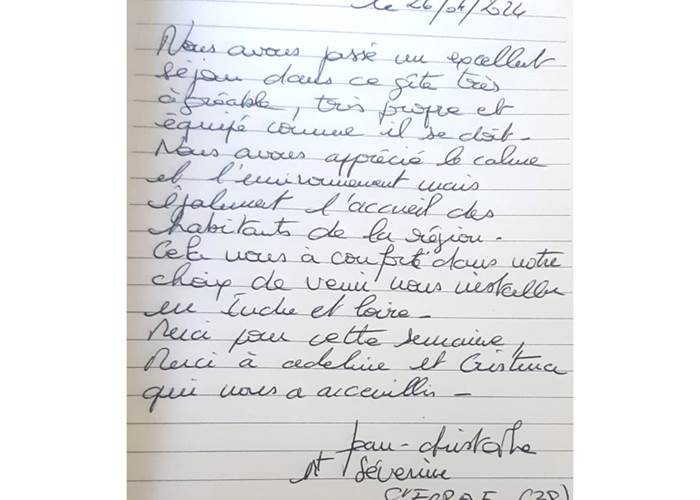 le 26/04/2024
Nous avons passé un excellent
séjour dans ce gîte très
agréable, très propre et
équipé comme il se doit.
Nous avons apprécié le calme
et l'environnement mais
également l'accueil des
habitants de la région.
Cela nous à conforté dans notre
choix de venir nous installer
en Indre et loire.
Merci pour cette semaine,
Merci à adeline et Cristina
qui nous a acceuillis -
Jean-christophe
et Séverine